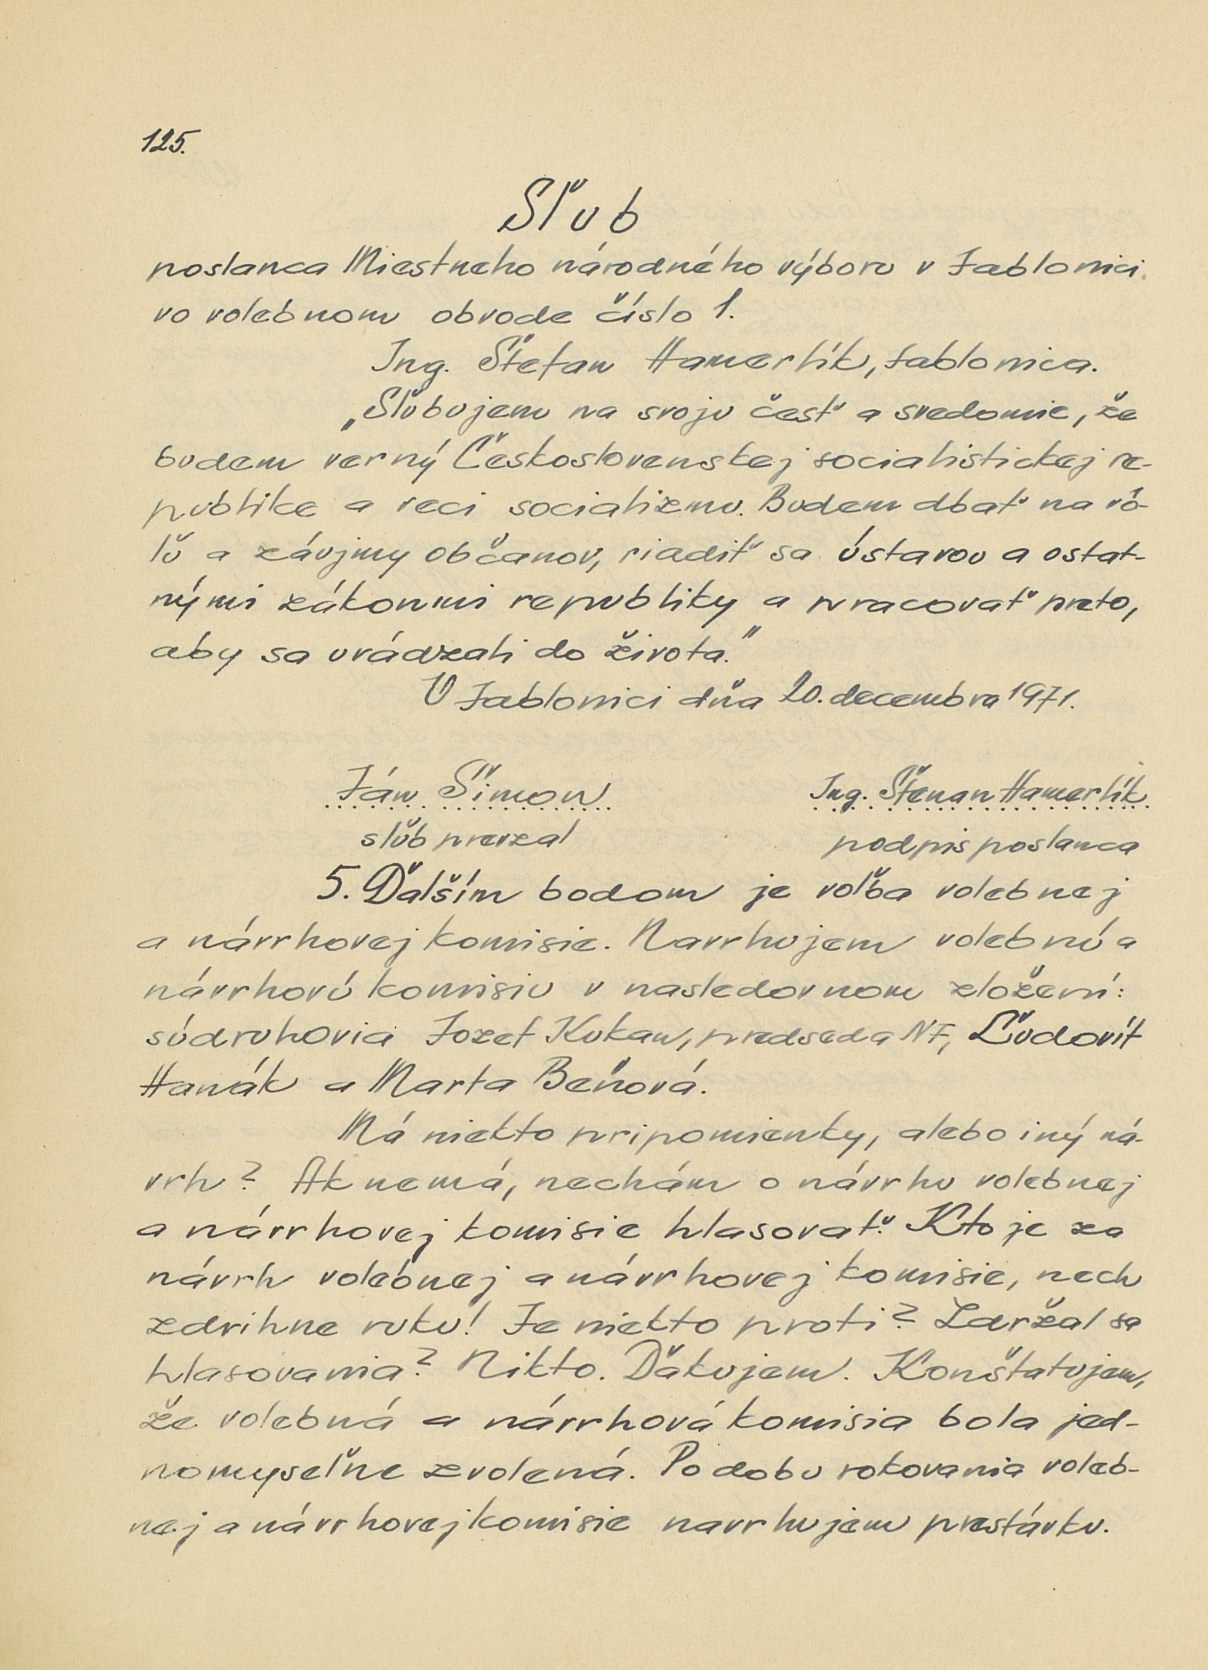 125.
Sľub
poslanca Miestneho národného výboru v Jablonici
vo volebnom obvode číslo 1.
Ing. Štefan Hamerlík, Jablonica.
„Sľubujem na svoju česť a svedomie, že
budem verný Československej socialistickej re-
publike a veci socializmu. Budem dbať na vô-
ľu a záujmy občanov, riadiť sa ústavou a ostat-
nými zákonmi republiky a pracovať preto,
aby sa uvádzali do života."
V Jablonici dňa 20. decembra 1971.
Ján Šimon Ing. Štenan Hamerlík
sľúb prevzal podpis poslanca
5. Ďalším bodom je voľba volebnej
a návrhovej komisie. Navrhujem volebnú a
návrhovú komisiu v nasledovnom zložení:
súdruhovia Jozef Kukan, predseda NF, Ľudovít
Hanák a Marta Beňová.
Má niekto pripomienky, alebo iný ná-
vrh? Ak nemá, nechám o návrhu volebnej
a návrhovej komisie hlasovať. Kto je za
návrh volebnej a návrhovej komisie, nech
zdvihne ruku! Je niekto proti? Zdržal sa
hlasovania? Nikto. Ďakujem. Konštatujem,
že volebná a návrhová komisia bola jed-
nomyseľne zvolená. Po dobu rokovania voleb-
nej a návrhovej komisie navrhujem prestávku.